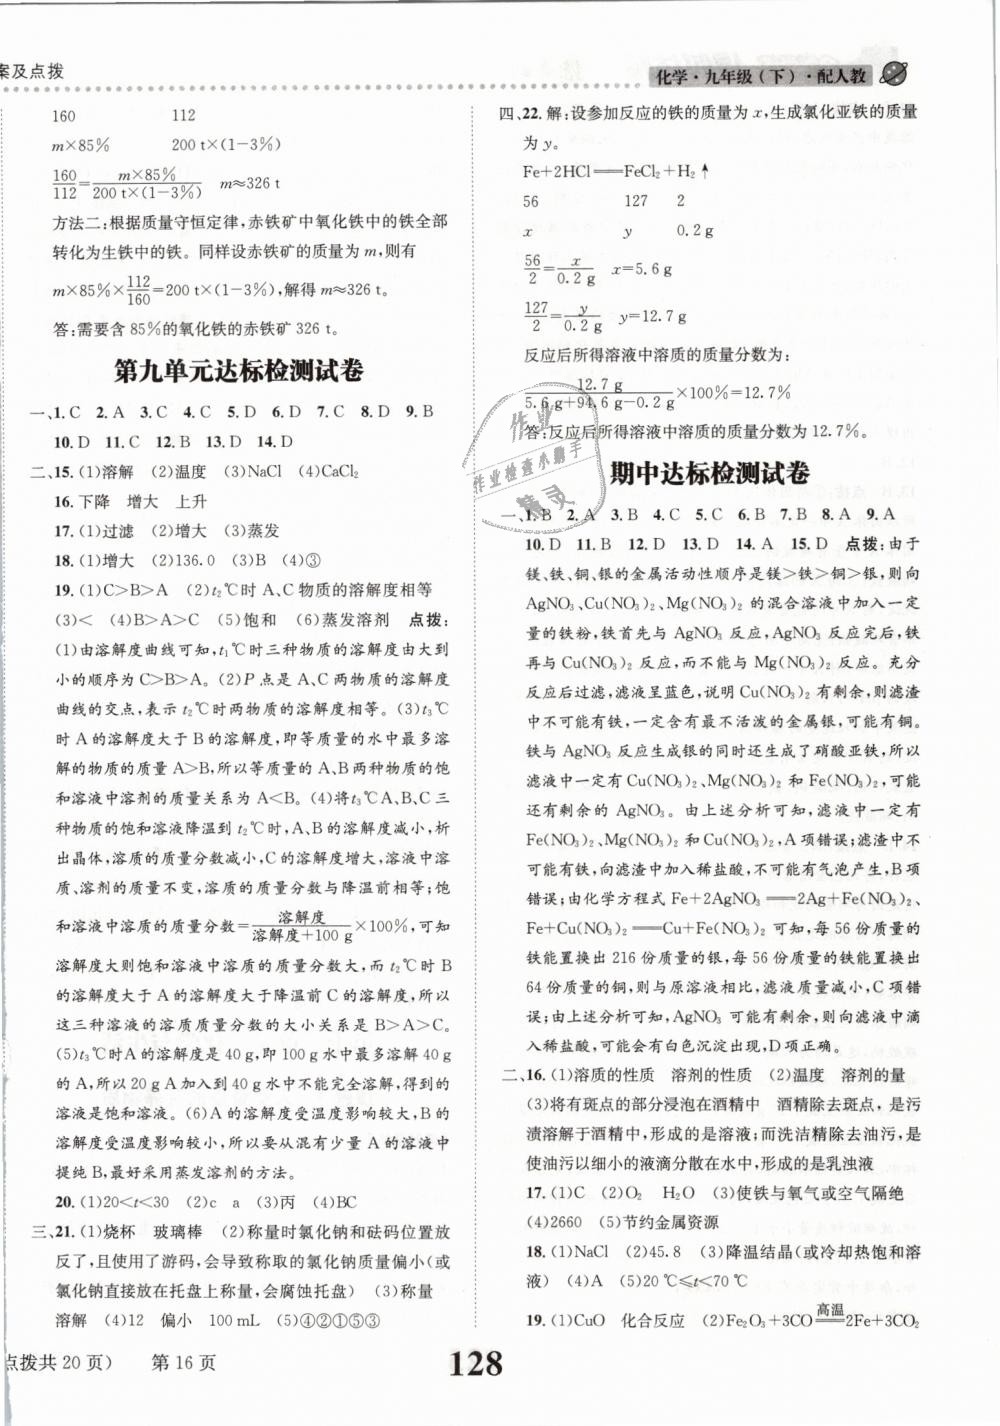 案及点拨
化学·九年级(下)·配人教
160 112
m×85% 200 t×(1-3%)
160/112=m×85%/200 t×(1-3%) m≈326 t
方法二:根据质量守恒定律,赤铁矿中氧化铁中的铁全部
转化为生铁中的铁。同样设赤铁矿的质量为 m,则有
m×85%×112/160=200 t×(1-3%),解得 m≈326 t。
答:需要含 85%的氧化铁的赤铁矿 326 t。
第九单元达标检测试卷
一、1. C 2. A 3. C 4. C 5. D 6. D 7. C 8. D 9. B
10. D 11. C 12. B 13. D 14. D
二、15. (1)溶解 (2)温度 (3)NaCl (4)CaCl₂
16. 下降 增大 上升
17. (1)过滤 (2)增大 (3)蒸发
18. (1)增大 (2)136.0 (3)B (4)③
19. (1)C>B>A (2)t₂℃时 A、C 物质的溶解度相等
(3)< (4)B>A>C (5)饱和 (6)蒸发溶剂 点拨:
(1)由溶解度曲线可知,t₁℃时三种物质的溶解度由大到
小的顺序为 C>B>A。(2)P 点是 A、C 两物质的溶解度
曲线的交点,表示 t₂℃时两物质的溶解度相等。(3)t₃℃
时 A 的溶解度大于 B 的溶解度,即等质量的水中最多溶
解的物质的质量 A>B,所以等质量的 A、B 两种物质的饱
和溶液中溶剂的质量关系为 A<B。(4)将t₃℃A、B、C 三
种物质的饱和溶液降温到 t₂℃时,A、B 的溶解度减小,析
出晶体,溶质的质量分数减小,C 的溶解度增大,溶液中溶
质、溶剂的质量不变,溶质的质量分数与降温前相等;饱
和溶液中溶质的质量分数=溶解度/溶解度+100 g×100%,可知
溶解度大则饱和溶液中溶质的质量分数大,而 t₂℃时 B
的溶解度大于 A 的溶解度大于降温前 C 的溶解度,所以
这三种溶液的溶质质量分数的大小关系是 B>A>C。
(5)t₃℃时A 的溶解度是 40 g,即 100 g水中最多溶解 40 g
的 A,所以 20 g A 加入到 40 g水中不能完全溶解,得到的
溶液是饱和溶液。(6)A 的溶解度受温度影响较大,B 的
溶解度受温度影响较小,所以要从混有少量 A 的溶液中
提纯 B,最好采用蒸发溶剂的方法。
20. (1)20<t<30 (2)c a (3)丙 (4)BC
三、21. (1)烧杯 玻璃棒 (2)称量时氯化钠和砝码位置放
反了,且使用了游码,会导致称取的氯化钠质量偏小(或
氯化钠直接放在托盘上称量,会腐蚀托盘) (3)称量
溶解 (4)12 偏小 100 mL (5)④②①⑤③
四、22. 解:设参加反应的铁的质量为 x,生成氯化亚铁的质量
为 y。
Fe+2HCl══FeCl₂+H₂↑
56 127 2
x y 0.2 g
56/2=x/0.2 g x=5.6 g
127/2=y/0.2 g y=12.7 g
反应后所得溶液中溶质的质量分数为:
12.7 g/5.6 g+94.6 g-0.2 g×100%=12.7%
答:反应后所得溶液中溶质的质量分数为 12.7%。
作业
作业检查小助手
精灵
期中达标检测试卷
一、1. B 2. A 3. B 4. C 5. C 6. B 7. B 8. A 9. A
10. D 11. B 12. D 13. D 14. A 15. D 点拨:由于
镁、铁、铜、银的金属活动性顺序是镁>铁>铜>银,则向
AgNO₃、Cu(NO₃)₂、Mg(NO₃)₂ 的混合溶液中加入一定
量的铁粉,铁首先与 AgNO₃ 反应,AgNO₃ 反应完后,铁
再与 Cu(NO₃)₂ 反应,而不能与 Mg(NO₃)₂ 反应。充分
反应后过滤,滤液呈蓝色,说明 Cu(NO₃)₂ 有剩余,则滤渣
中不可能有铁,一定含有最不活泼的金属银,可能有铜。
铁与 AgNO₃ 反应生成银的同时还生成了硝酸亚铁,所以
滤液中一定有 Cu(NO₃)₂、Mg(NO₃)₂ 和 Fe(NO₃)₂,可能
还有剩余的 AgNO₃。由上述分析可知,滤液中一定有
Fe(NO₃)₂、Mg(NO₃)₂ 和 Cu(NO₃)₂,A 项错误;滤渣中不
可能有铁,向滤渣中加入稀盐酸,不可能有气泡产生,B 项
错误;由化学方程式 Fe+2AgNO₃══2Ag+Fe(NO₃)₂、
Fe+Cu(NO₃)₂══Cu+Fe(NO₃)₂ 可知,每 56 份质量的
铁能置换出 216 份质量的银,每 56 份质量的铁能置换出
64 份质量的铜,则与原溶液相比,滤液质量减小,C 项错
误;由上述分析可知,AgNO₃ 可能有剩余,则向滤液中滴
入稀盐酸,可能会有白色沉淀出现,D 项正确。
二、16. (1)溶质的性质 溶剂的性质 (2)温度 溶剂的量
(3)将有斑点的部分浸泡在酒精中 酒精除去斑点,是污
渍溶解于酒精中,形成的是溶液;而洗洁精除去油污,是
使油污以细小的液滴分散在水中,形成的是乳浊液
17. (1)C (2)O₂ H₂O (3)使铁与氧气或空气隔绝
(4)2660 (5)节约金属资源
18. (1)NaCl (2)45.8 (3)降温结晶(或冷却热饱和溶
液) (4)A (5)20 ℃≤t<70 ℃
19. (1)CuO 化合反应 (2)Fe₂O₃+3CO 高温══2Fe+3CO₂
点拨共 20 页) 第 16 页
128